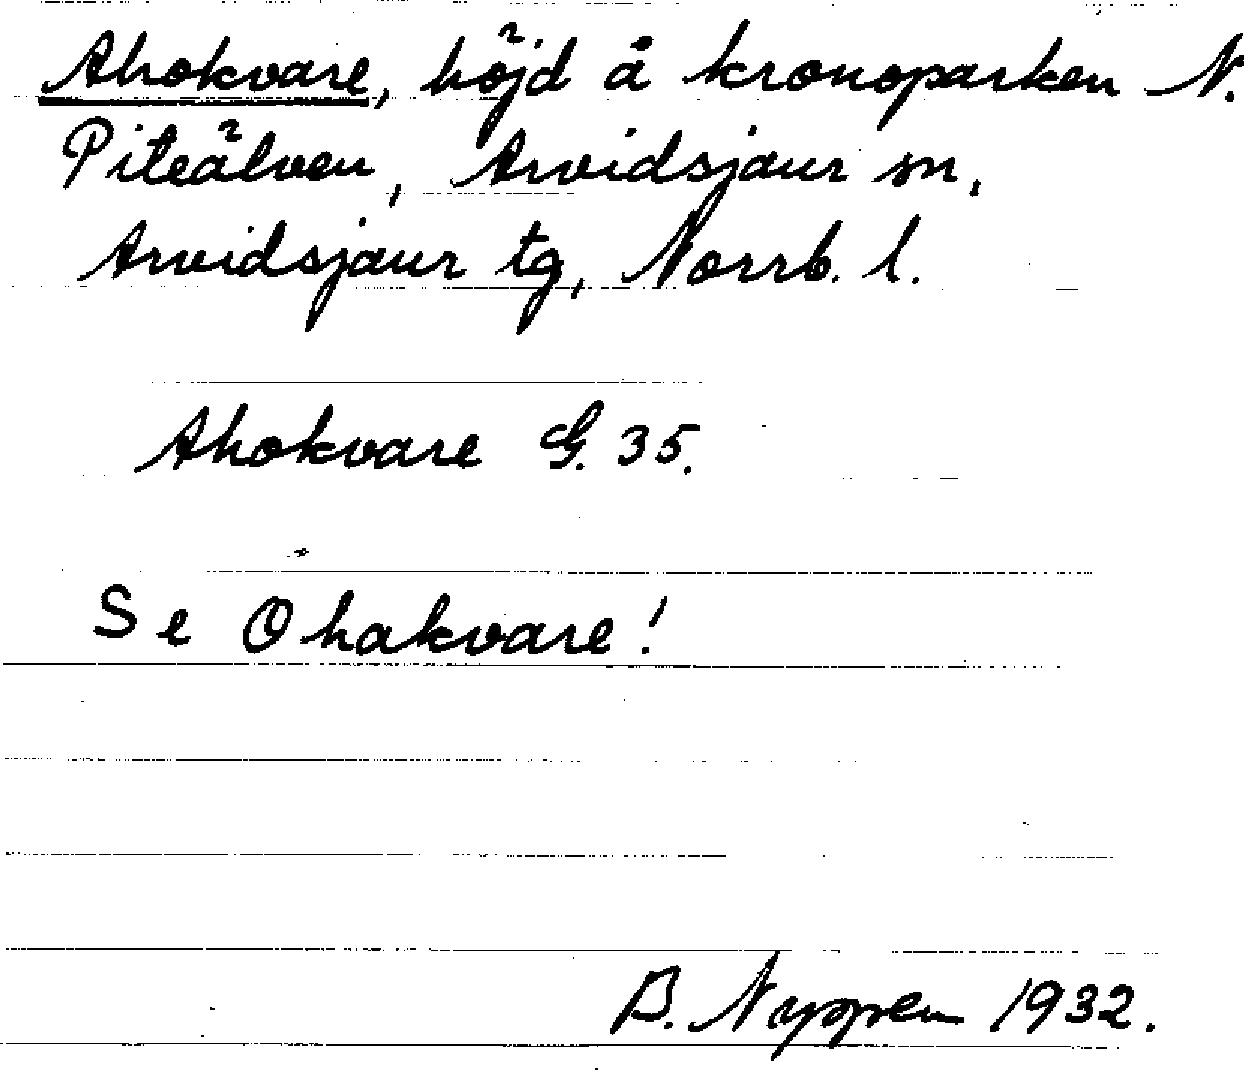 Ahokvare, höjd å kronoparken N.
Piteälven, Arvidsjaur sn,
Arvidsjaur tg, Norrb. l.
Ahokvare G. 35.
Se Ohakvare!
B. Nyppen 1932.